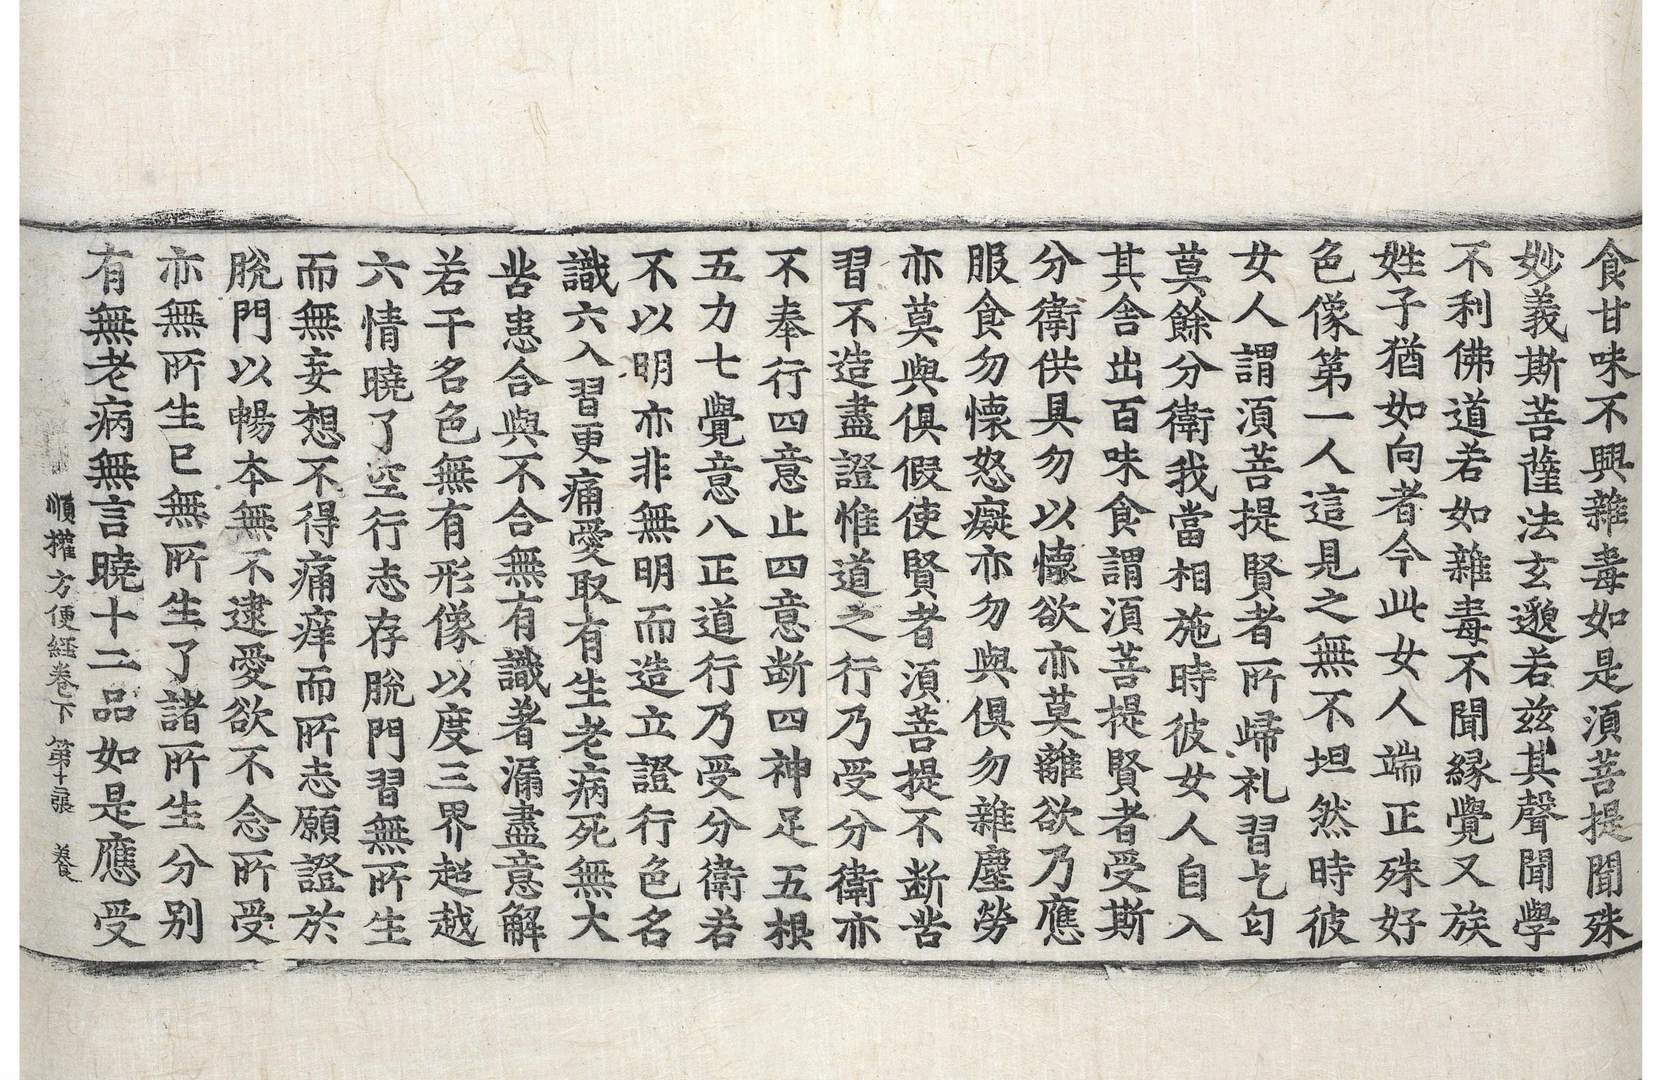 食甘味不興雜毒如是須菩提聞殊
妙義斯菩薩法玄邈若茲其聲聞學
不利佛道若如雜毒不聞緣覺又族
姓子猶如向者今此女人端正殊好
色像第一人這見之無不坦然時彼
女人謂須菩提賢者所歸礼習乞匂
莫餘分衛我當相施時彼女人自入
其舍出百味食謂須菩提賢者受斯
分衛供具勿以懷欲亦莫離欲乃應
服食勿懷怒癡亦勿與俱勿雜塵勞
亦莫與俱假使賢者須菩提不断苦
習不造盡證惟道之行乃受分衛亦
不奉行四意止四意断四神足五根
五力七覺意八正道行乃受分衛若
不以明亦非無明而造立證行色名
識六入習更痛愛取有生老病死無大
苦患合與不合無有識著漏盡意解
若干名色無有形像以度三界超越
六情曉了空行志存脫門習無所生
而無妄想不得痛痒而所志願證於
脫門以暢本無不逮愛欲不念所受
亦無所生已無所生了諸所生分別
有無老病無言曉十二品如是應受
順權方便経卷下 第十二張 養